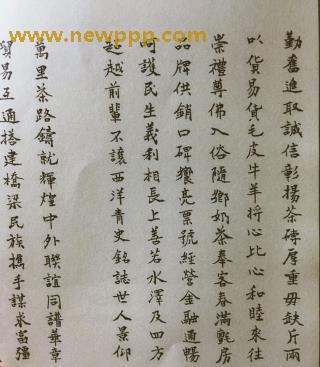 www.newppp.com
勤奮進取誠信彰揚茶磚厚重毋缺斤兩
以貨易貨毛皮牛羊將心比心和睦來往
崇禮尊佛入俗隨鄉奶茶奉客春滿氈房
品牌供銷口碑響亮票號經營金融通暢
呵護民生義利相長上善若水澤及四方
超越前輩不讓西洋青史銘誌世人景仰
萬里茶路鑄就輝煌中外聯誼同譜華章
貿易互通搭建橋梁民族攜手謀求富強